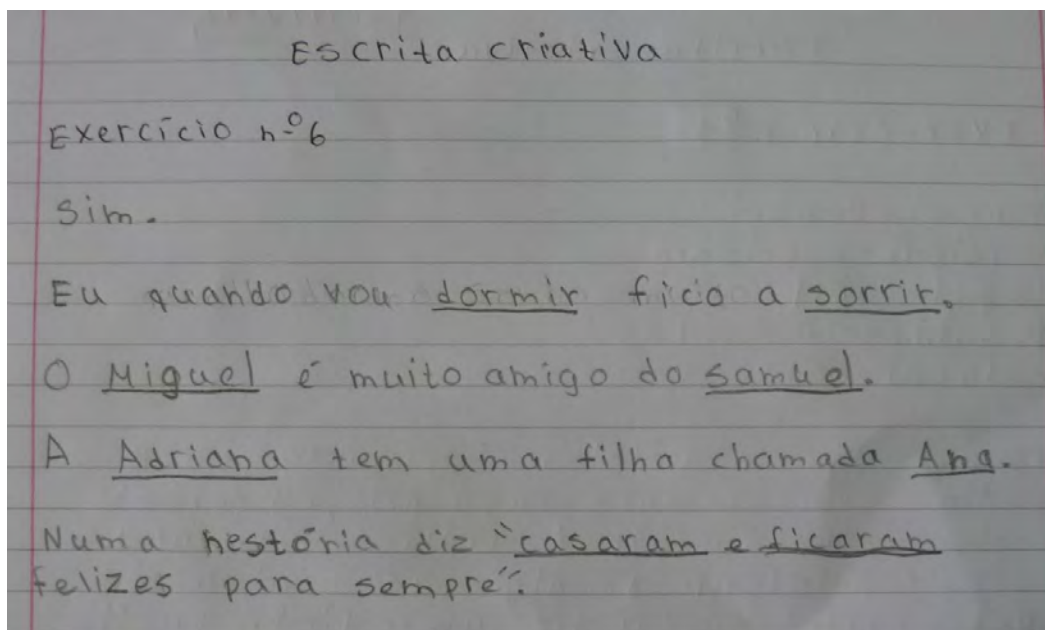 Escrita criativa
Exercício nº6
Sim.
Eu quando vou dormir fico a sorrir.
O Miguel é muito amigo do Samuel.
A Adriana tem uma filha chamada Ana.
Numa hestória diz "casaram e ficaram
felizes para sempre".